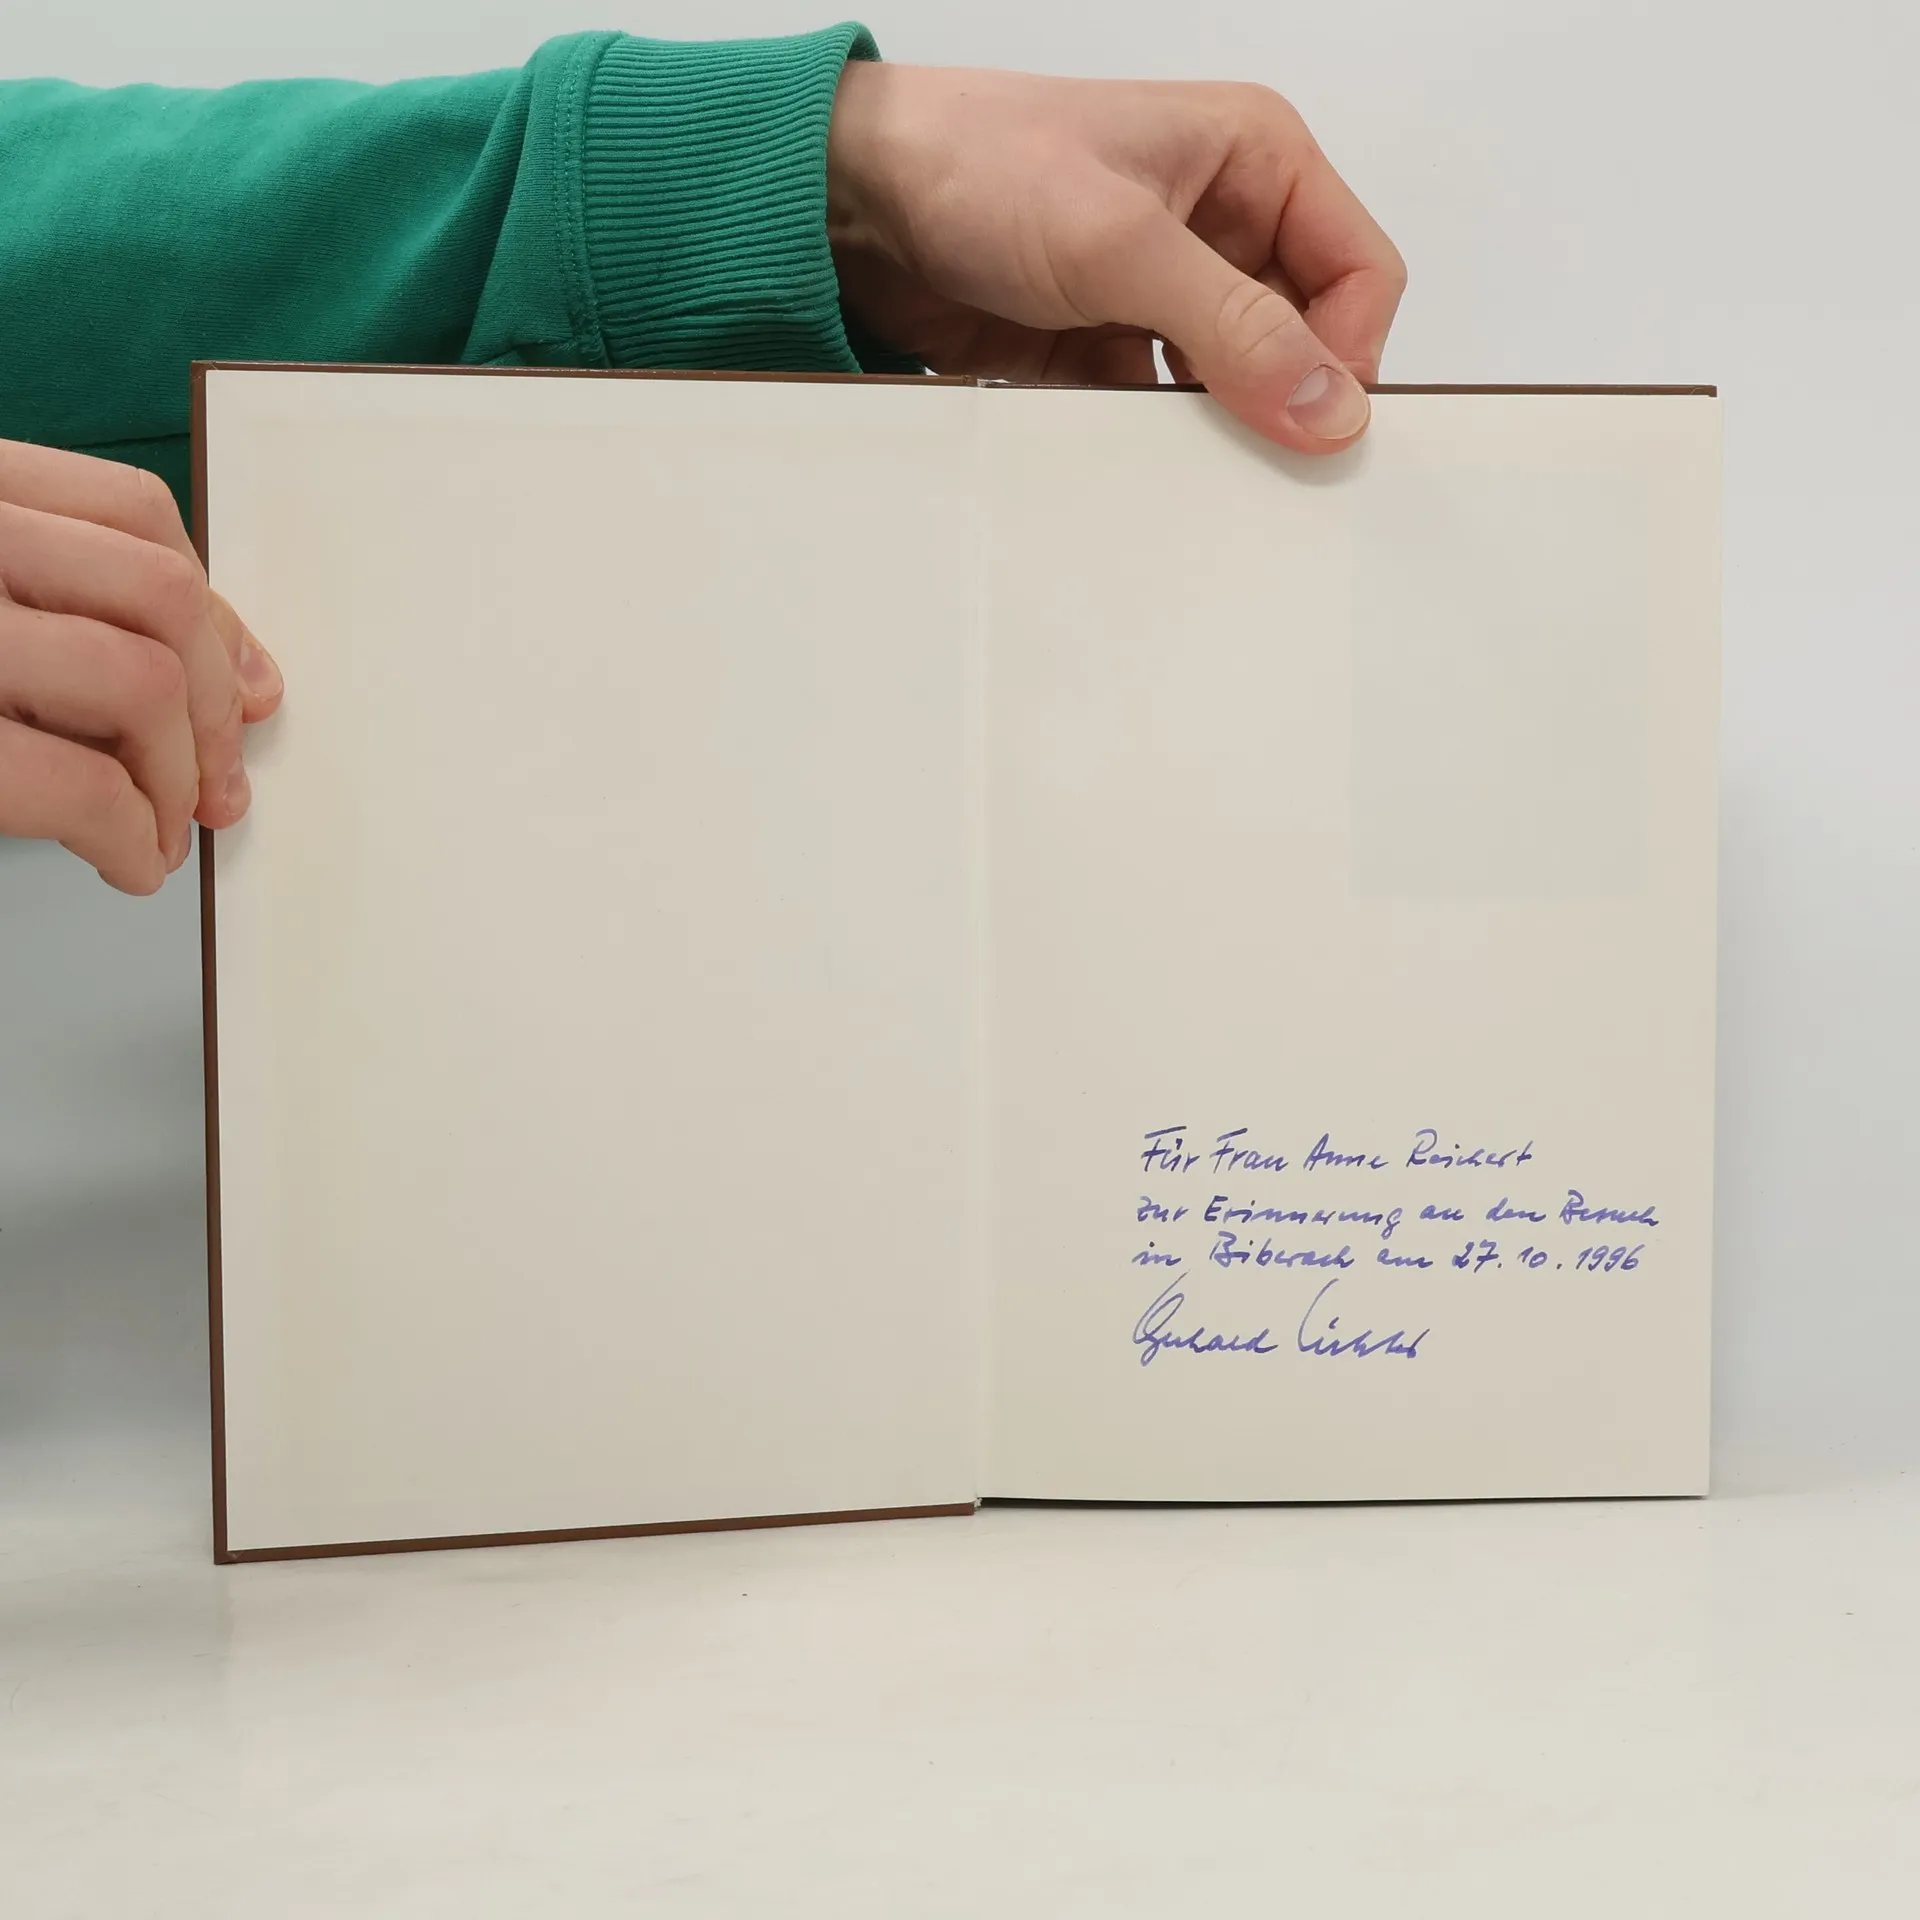 Für Frau Anne Reichert
zur Erinnerung an den Besuch
in Biberach am 27.10.1996
Gerhard